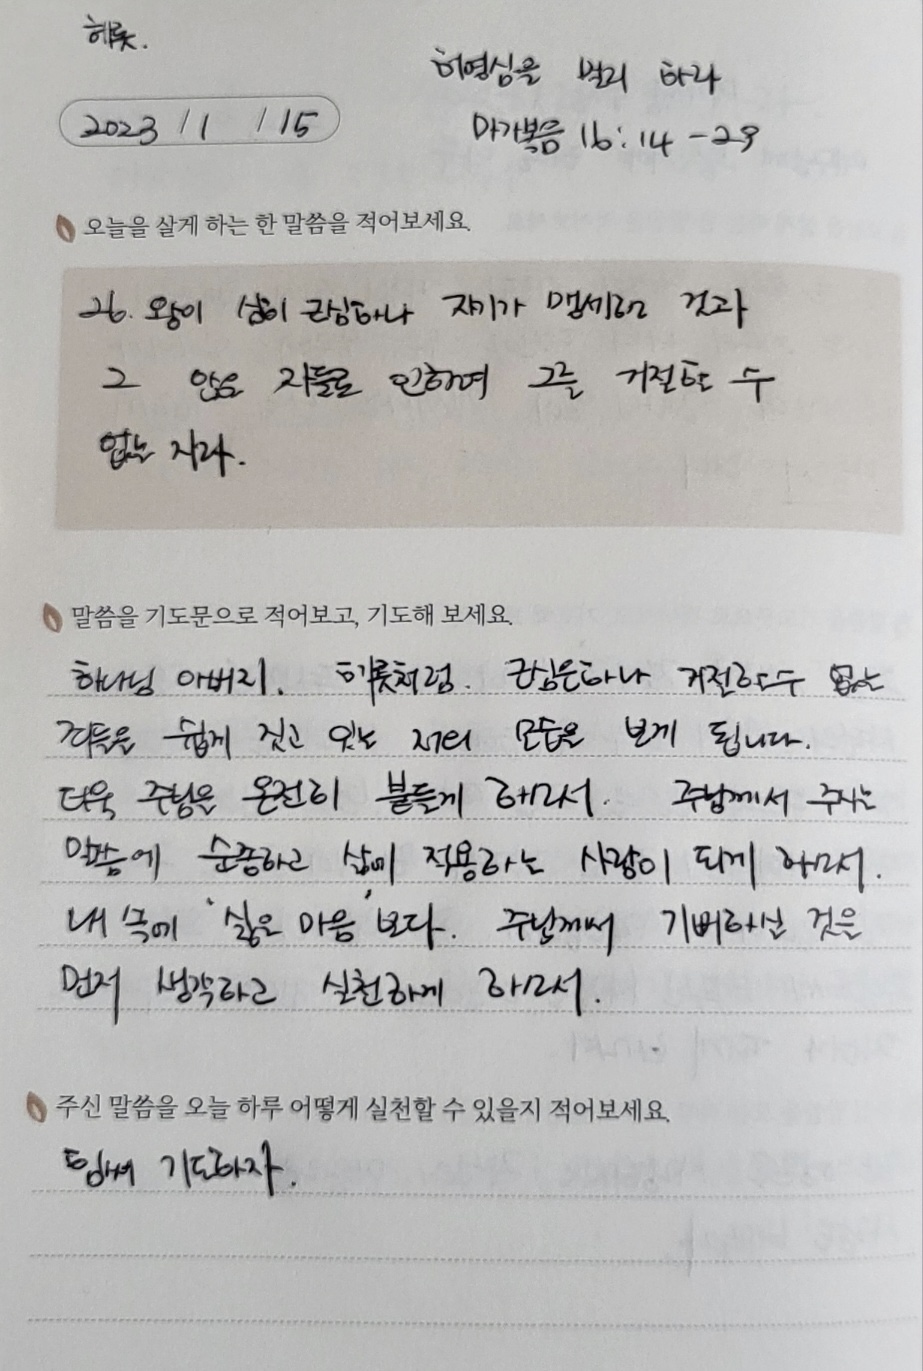 헤롯.
허영심을 버리 하라
2023 / 1 / 15
마가복음 16:14-29
오늘을 살게 하는 한 말씀을 적어보세요.
26. 왕이 심히 근심하나 자기가 맹세한 것과
그 앉은 자들로 인하여 그를 거절할 수
없는 지라.
말씀을 기도문으로 적어보고, 기도해 보세요.
하나님 아버지. 헤롯처럼. 근심은하나 거절할수 없는
죄들을 쉽게 짓고 있는 저의 모습을 보게 됩니다.
더욱 주님을 온전히 붙들게 하소서. 주님께서 주시는
말씀에 순종하고 삶에 적용하는 사람이 되게 하소서.
내 속에 '싫은 마음' 보다. 주님께서 기뻐하실 것을
먼저 생각하고 실천하게 하소서.
주신 말씀을 오늘 하루 어떻게 실천할 수 있을지 적어보세요.
힘써 기도하자.